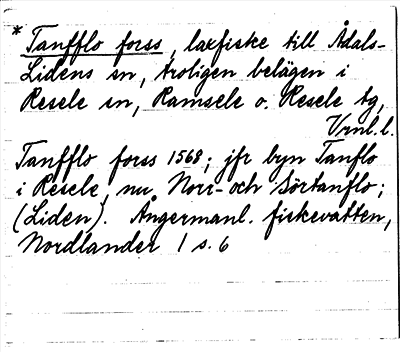 * Tanfflo forss, laxfiske till Ådals-
Lidens sn, troligen belägen i
Resele sn, Ramsele o. Resele tg,
Vrnl.l.
Tanfflo forss 1568; jfr byn Tanflo
i Resele, nu Norr- och Sörtanflo;
(Liden). Ångermanl. fiskevatten,
Nordlander 1 s. 6